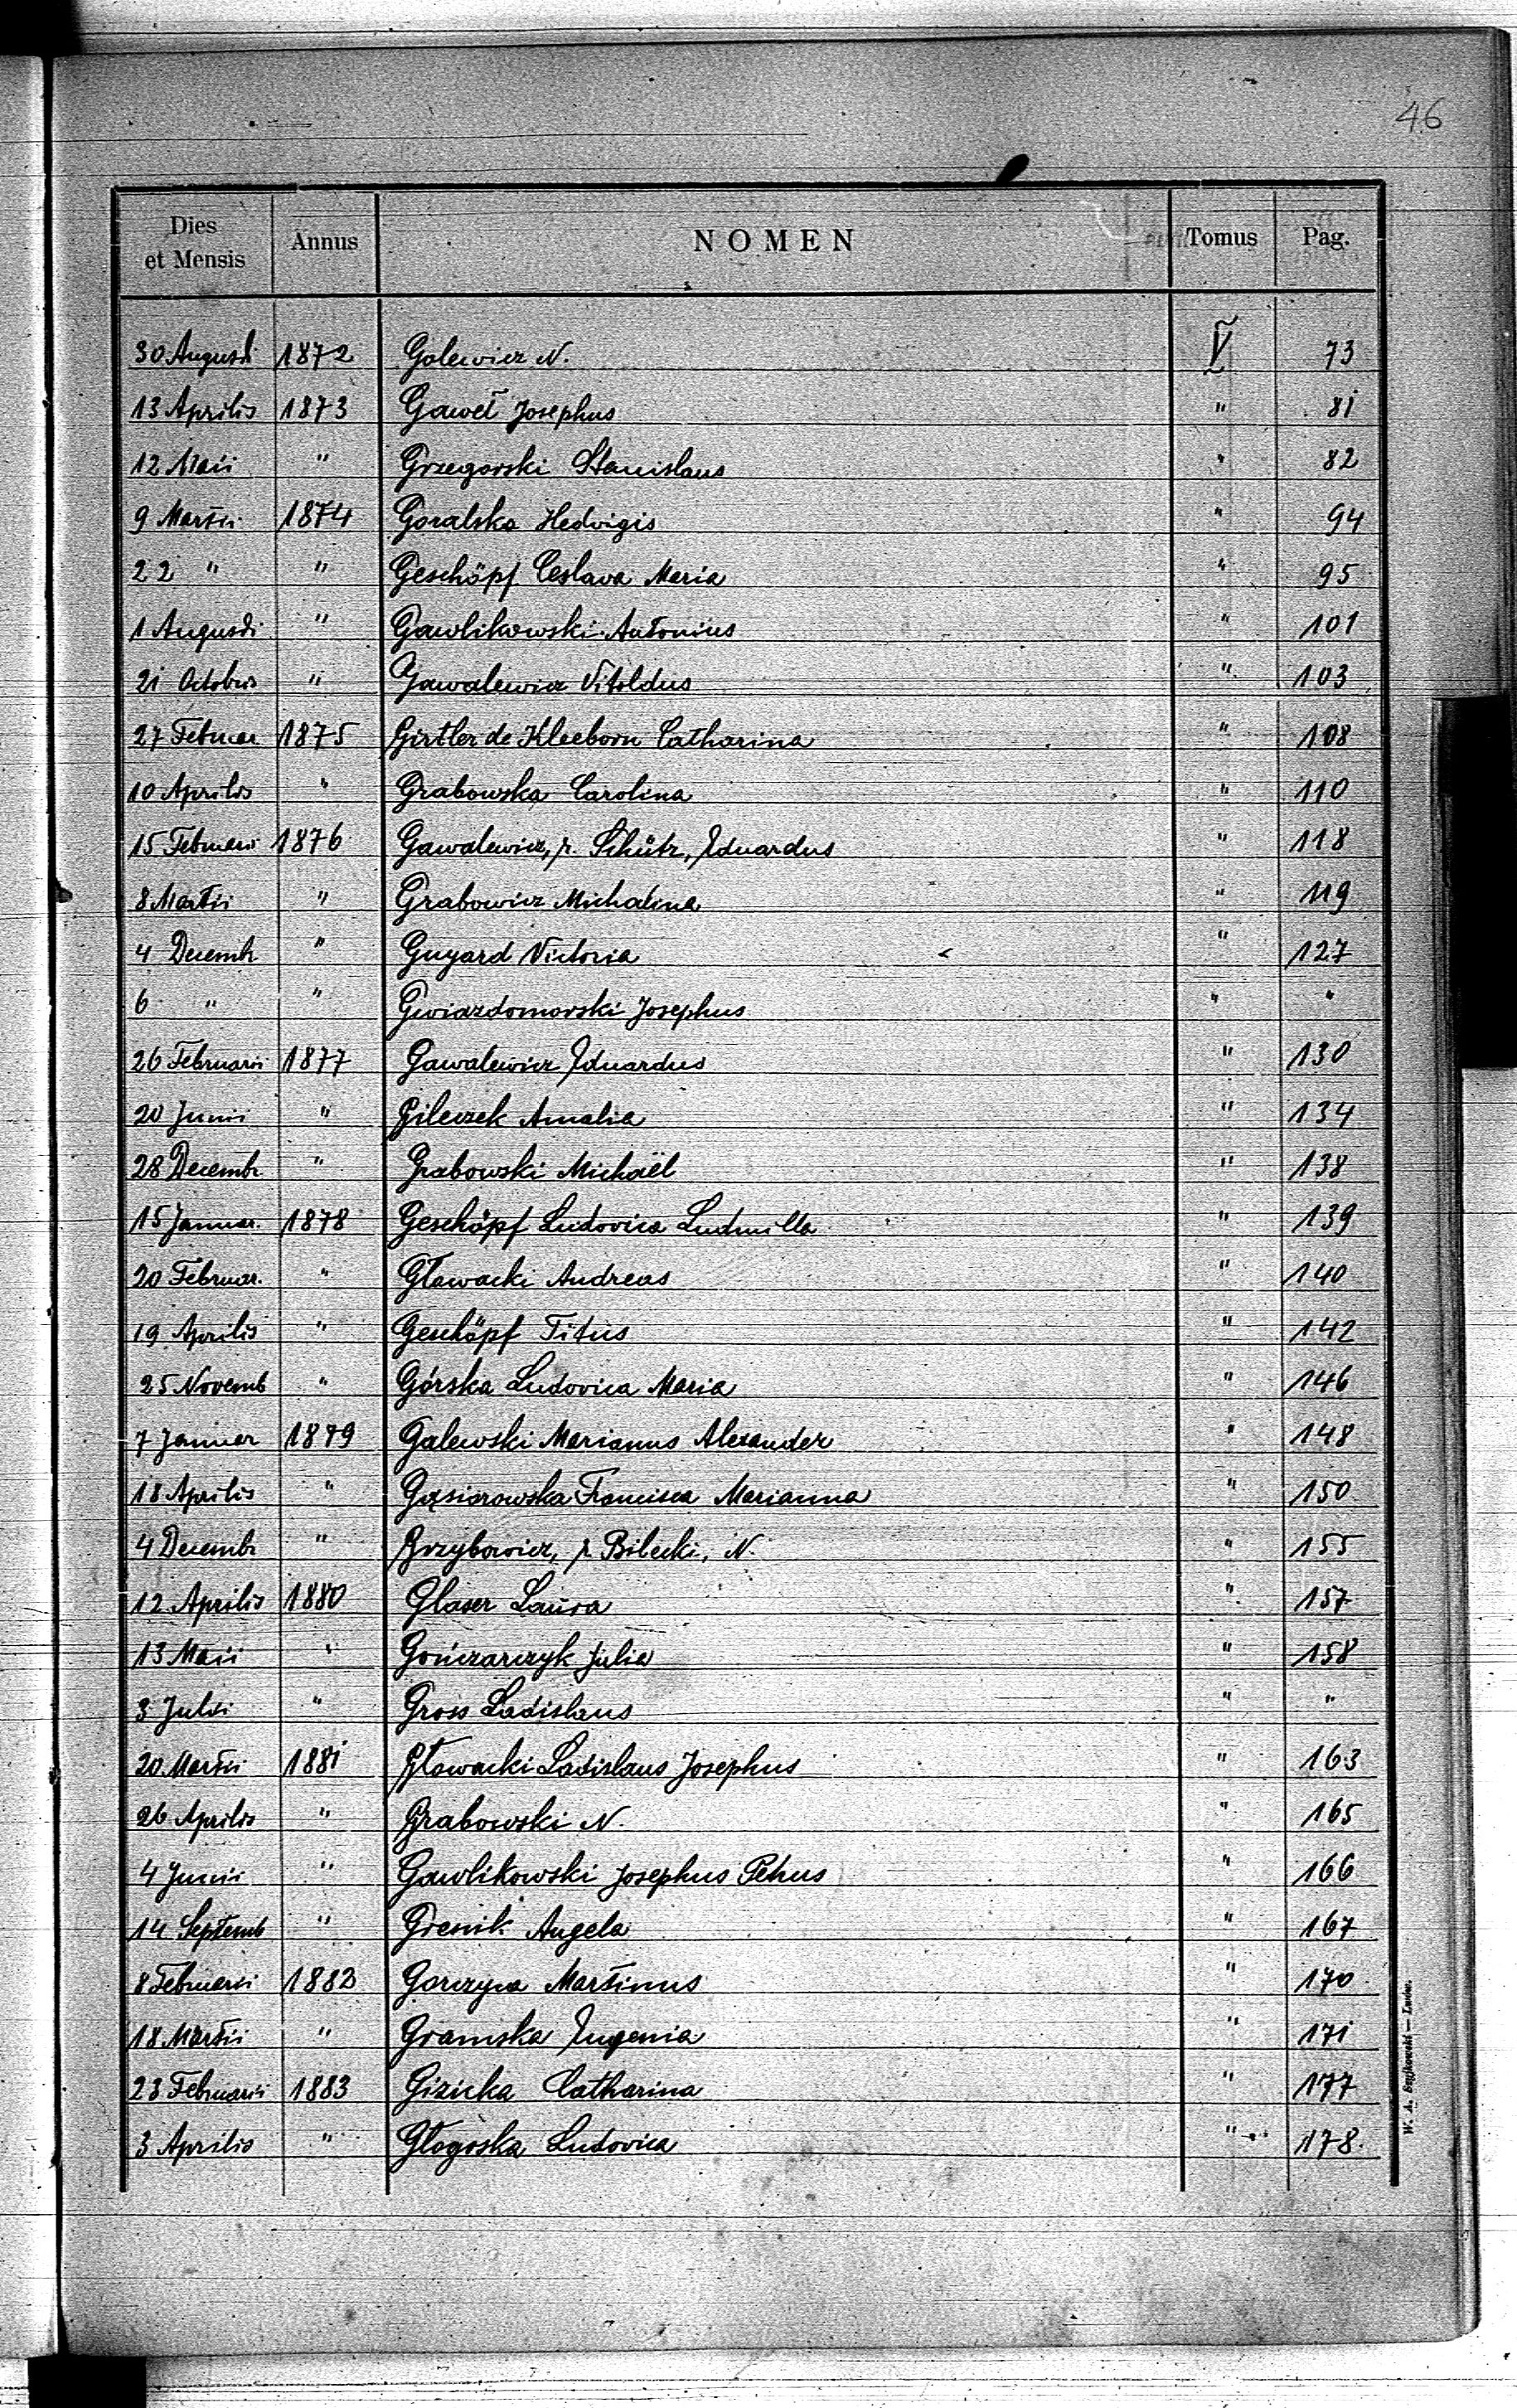 46
Dies et Mensis Annus NOMEN Tomus Pag.
30 Augusti 1872 Golewicz N. V 73
13 Aprilis 1873 Gaweł Josephus " 81
12 Maii " Grzegorski Stanislaus " 82
9 Martii 1874 Goralska Hedvigis " 94
22 " " Geschöpf Ceslava Maria " 95
1 Augusti " Gawlikowski Antonius " 101
21 Octobris " Gawalewicz Vitoldus " 103
27 Februar 1875 Girtler de Kleeborn Catharina " 108
10 Aprilis " Grabowska Carolina " 110
15 Februarii 1876 Gawalewicz, r. Schütz, Eduardus " 118
8 Martii " Grabowicz Michalina " 119
4 Decembr " Guyard Victoria " 127
6 " " Gwiazdomorski Josephus " "
26 Februarii 1877 Gawalewicz Eduardus " 130
20 Junii " Gileczek Amalia " 134
28 Decembr " Grabowski Michaël " 138
15 Januar. 1878 Geschöpf Ludovica Ludmilla " 139
20 Februar. " Głowacki Andreas " 140
19 Aprilis " Geschöpf Titus " 142
25 Novemb " Górska Ludovica Maria " 146
7 Januar 1879 Galewski Marianus Alexander " 148
18 Aprilis " Gąsiorowska Francisca Marianna " 150
4 Decembr " Grzybowicz, r. Bilecki, N. " 155
12 Aprilis 1880 Glaser Laura " 157
13 Maii " Gończarczyk Julia " 158
3 Julii " Gross Ladislaus " "
20 Martii 1881 Głowacki Ladislaus Josephus " 163
26 Aprilis " Grabowski N. " 165
4 Junii " Gawlikowski Josephus Petrus " 166
14 Septemb " Gresnik Angela " 167
8 Februarii 1882 Gorczyca Martinus " 170
18 Martii " Gramska Eugenia " 171
23 Februarii 1883 Gizicka Catharina " 177
3 Aprilis " Głogoska Ludovica " 178.